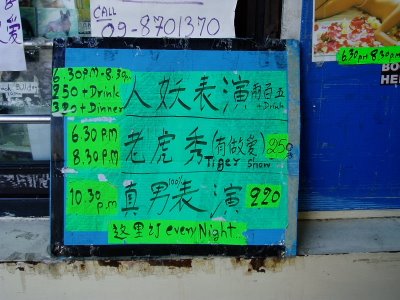 CALL
09-8701370
6.30 pm 8.30 pm
HERE
6.30 P.M - 8.30 p.m
250 + Drink
320 + Dinner
人妖表演 兩百五
+ Drink
6.30 P.M
8.30 P.M
老虎秀(有做愛) 250
Tiger Show
10.30 p.m
100%
真男表演 220
這里 every Night